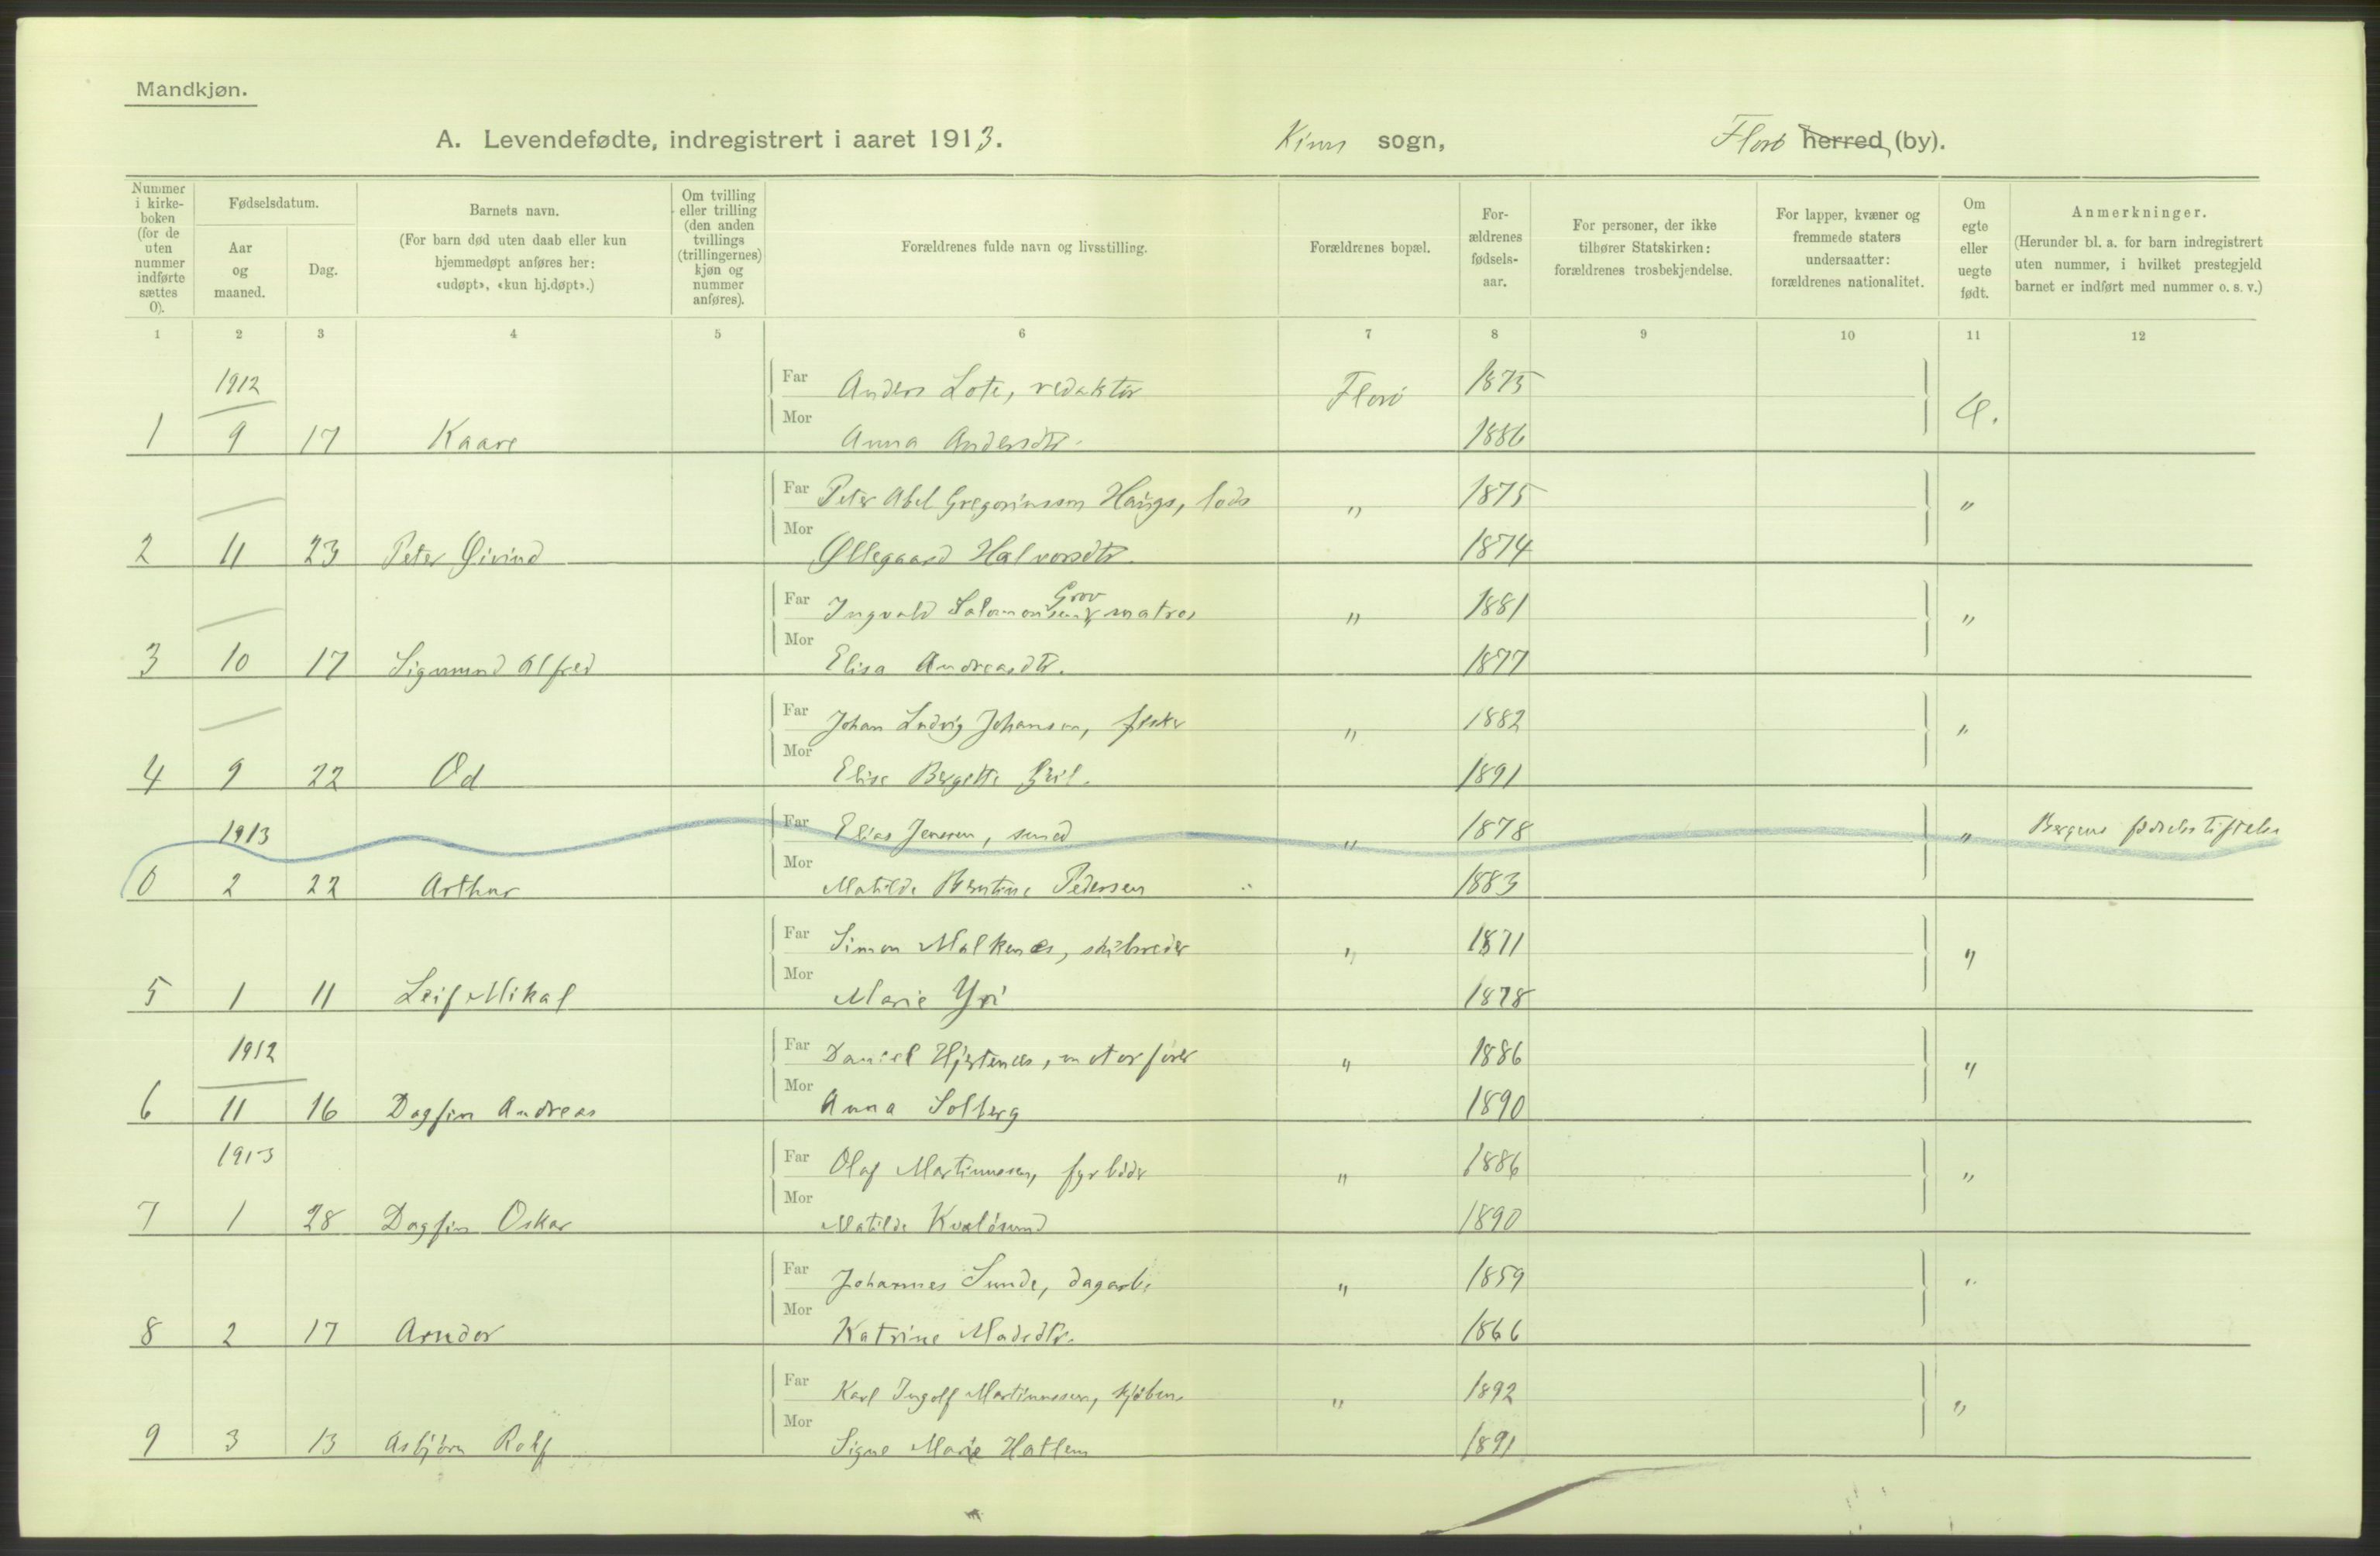 Mandkjøn.
A. Levendefødte, indregistrert i aaret 1913. Kinn sogn, Florø herred (by).
Nummer i kirkeboken (for de uten nummer indførte sættes 0).
Fødselsdatum.
Aar og maaned.
Dag.
Barnets navn.
(For barn død uten daab eller kun hjemmedøpt anføres her: «udøpt», «kun hj.døpt».)
Om tvilling eller trilling (den anden tvillings (trillingernes) kjøn og nummer anføres).
Forældrenes fulde navn og livsstilling.
Forældrenes bopæl.
Forældrenes fødselsaar.
For personer, der ikke tilhører Statskirken: forældrenes trosbekjendelse.
For lapper, kvæner og fremmede staters undersaatter: forældrenes nationalitet.
Om egte eller uegte født.
Anmerkninger.
(Herunder bl. a. for barn indregistrert uten nummer, i hvilket prestegjeld barnet er indført med nummer o. s. v.)
1 2 3 4 5 6 7 8 9 10 11 12
1912 Far Anders Lote, redaktør Florø 1875
1 9 17 Kaare Mor Anna Andersdtr. 1886
Far Peter Abel Gregoriussen Haugs, lods " 1875 "
2 11 23 Peter Øivind Mor Øllegaard Halvorsdtr. 1874
Grov
Far Ingvald Salomonsen, matros " 1881 "
3 10 17 Sigmund Alfred Mor Elisa Andreasdtr. 1877
Far Johan Ludvig Johansen, fisker " 1882 "
4 9 22 Od Mor Elise Bergette 1891
1913 Far Elias Jensen, smed " 1878 " Bergens fødselsstiftelse
0 2 22 Arthur Mor Matilde Bertine Pedersen 1883
Far Simon Malkenes, skibsreder " 1871 "
5 1 11 Leif Mikal Mor Marie Yri 1878
1912 Far Daniel Hjertenes, motorfører " 1886 "
6 11 16 Dagfin Andreas Mor Anna Solberg 1890
1913 Far Olaf Martinussen, fyrbøder " 1886 "
7 1 28 Dagfin Oskar Mor Matilde Kvaløsund 1890
Far Johannes Sunde, dagarb. " 1859 "
8 2 17 Arndor Mor Katrine Madsdtr. 1866
Far Karl Ingolf Martinussen, kjøbm. " 1892 "
9 3 13 Asbjørn Rolf Mor Signe Marie Hatlem 1891